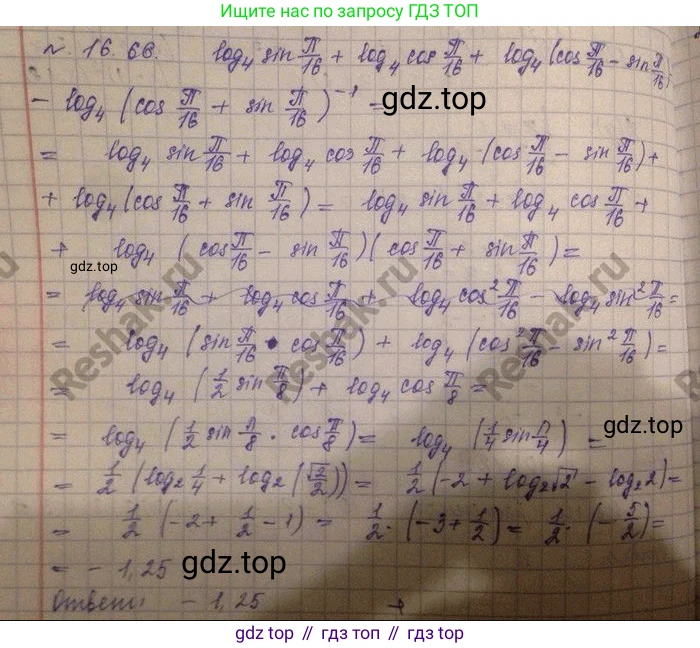 Ищите нас по запросу ГДЗ ТОП
№ 16.66. log₄ sin π/16 + log₄ cos π/16 + log₄ (cos π/16 - sin π/16)
- log₄ (cos π/16 + sin π/16)⁻¹ =
gdz.top
= log₄ sin π/16 + log₄ cos π/16 + log₄ (cos π/16 - sin π/16) +
+ log₄ (cos π/16 + sin π/16) = log₄ sin π/16 + log₄ cos π/16 +
+ log₄ (cos π/16 - sin π/16)(cos π/16 + sin π/16) =
gdz.top
= log₄ sin π/16 + log₄ cos π/16 + log₄ cos² π/16 - log₄ sin² π/16 =
= log₄ (sin π/16 · cos π/16) + log₄ (cos² π/16 - sin² π/16) =
= log₄ (1/2 sin π/8) + log₄ cos π/8 =
= log₄ (1/2 sin π/8 · cos π/8) = log₄ (1/4 sin π/4) =
gdz.top
= 1/2 (log₂ 1/4 + log₂ (√2/2)) = 1/2 (-2 + log₂ √2 - log₂ 2) =
= 1/2 (-2 + 1/2 - 1) = 1/2 · (-3 + 1/2) = 1/2 · (-5/2) =
= - 1,25
gdz.top
Ответ: - 1,25
Reshak.ru
Reshak.ru
Reshak.ru
gdz.top // гдз.топ // gdz.top